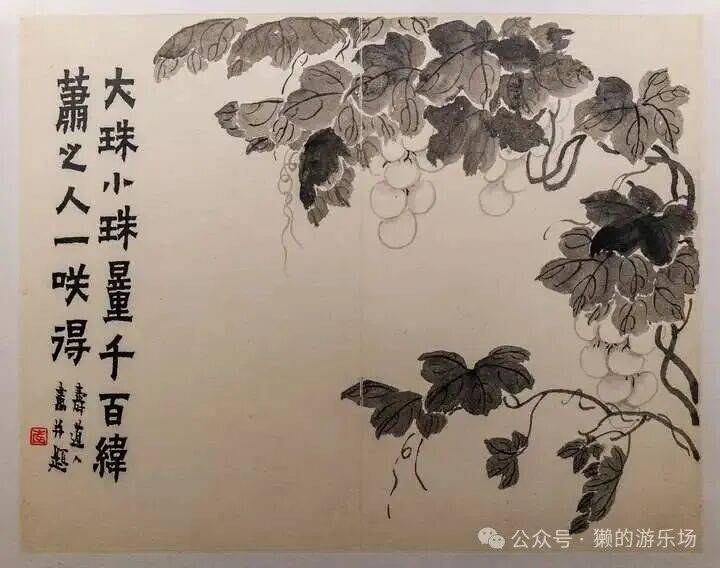 大珠小珠量千百緯
蕭之人一咲得
壽道人
畫并題
公众号 · 獭的游乐场